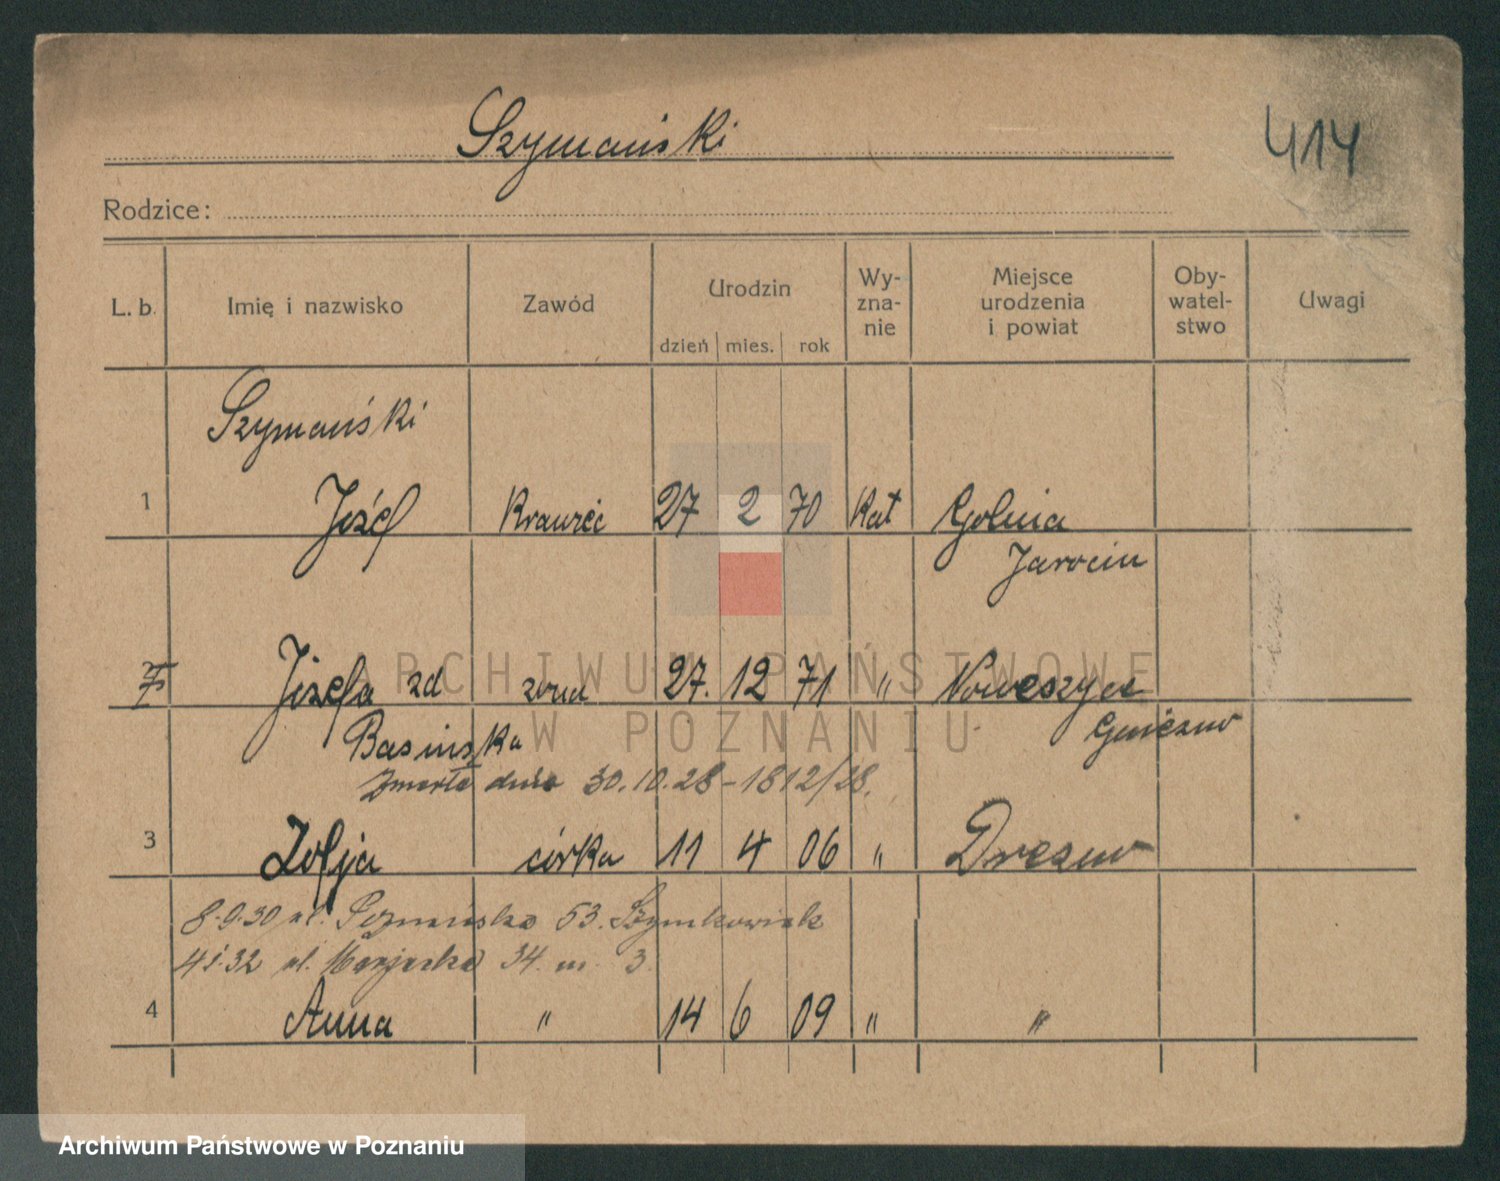 Szymański
414
Rodzice:
L. b. Imię i nazwisko Zawód Urodzin dzień mies. rok Wy-zna-nie Miejsce urodzenia i powiat Oby-watel-stwo Uwagi
Szymański
1 Józef Krawiec 27 2 70 Kat Golina
Jarocin
Józefa zd żona 27. 12 71 "
ARCHIWUM PAŃSTWOWE
W POZNANIU
Basińska Gniezno
Zmarła dnia 30.10.28 - 1812/28.
3 Zofja córka 11 4 06 " Drezno
8.9.30 ul. Poznańska 53. Szymkowiak
ul. 34 m. 3.
4 Anna " 14 6 09 " "
Archiwum Państwowe w Poznaniu